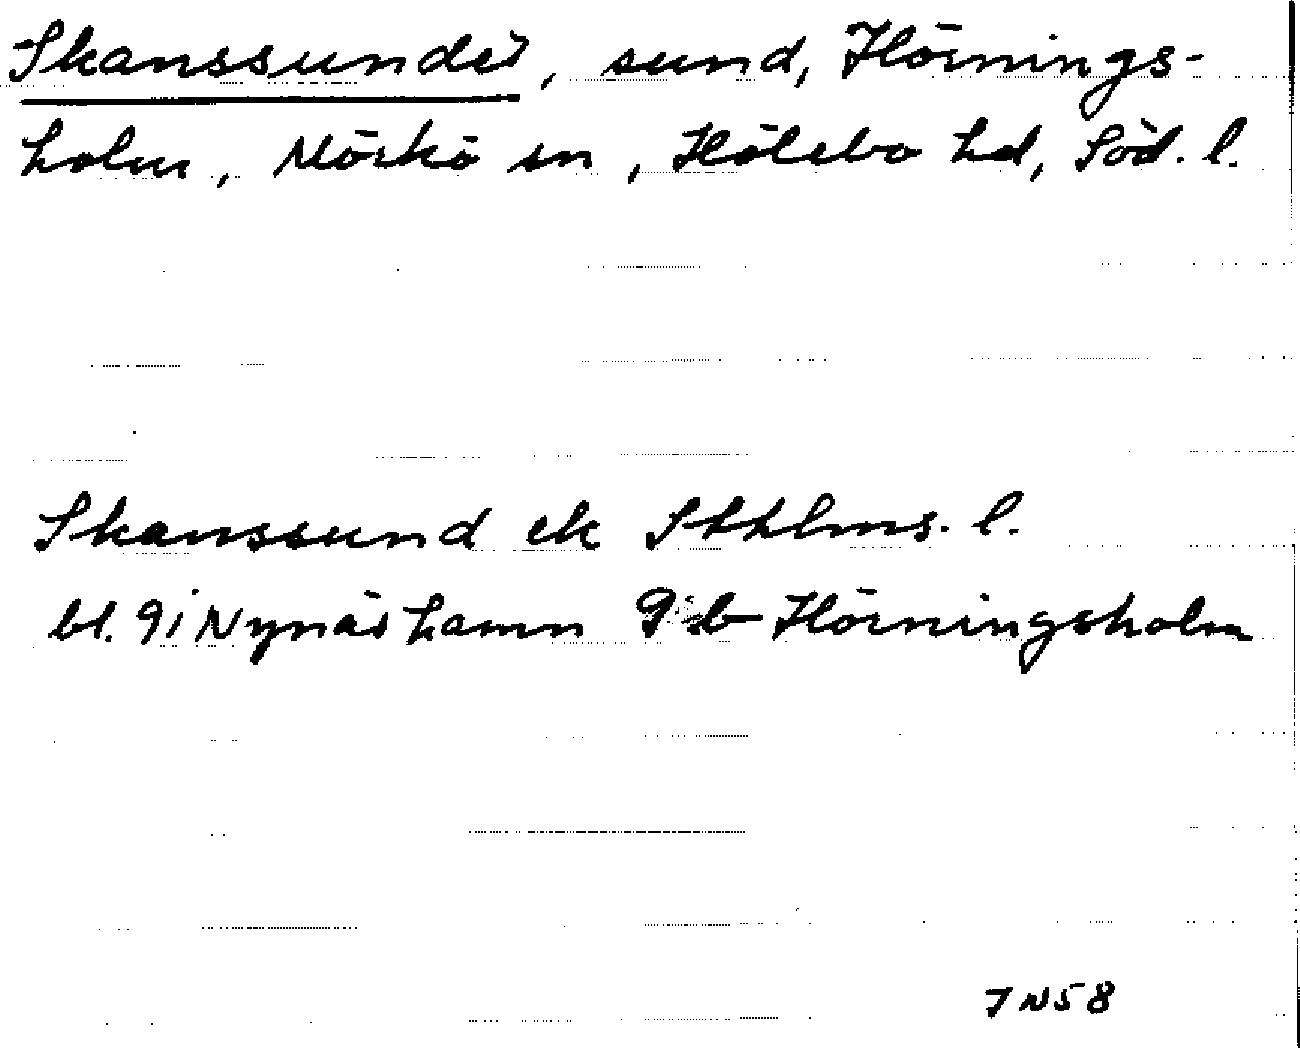 Skanssundet, sund, Hörnings-
holm, Mörkö sn, Hölebo hd, Söd. l.
Skanssund ek Sthlms. l.
bl. 9i Nynäshamn 9i b Hörningsholm
7 N 58